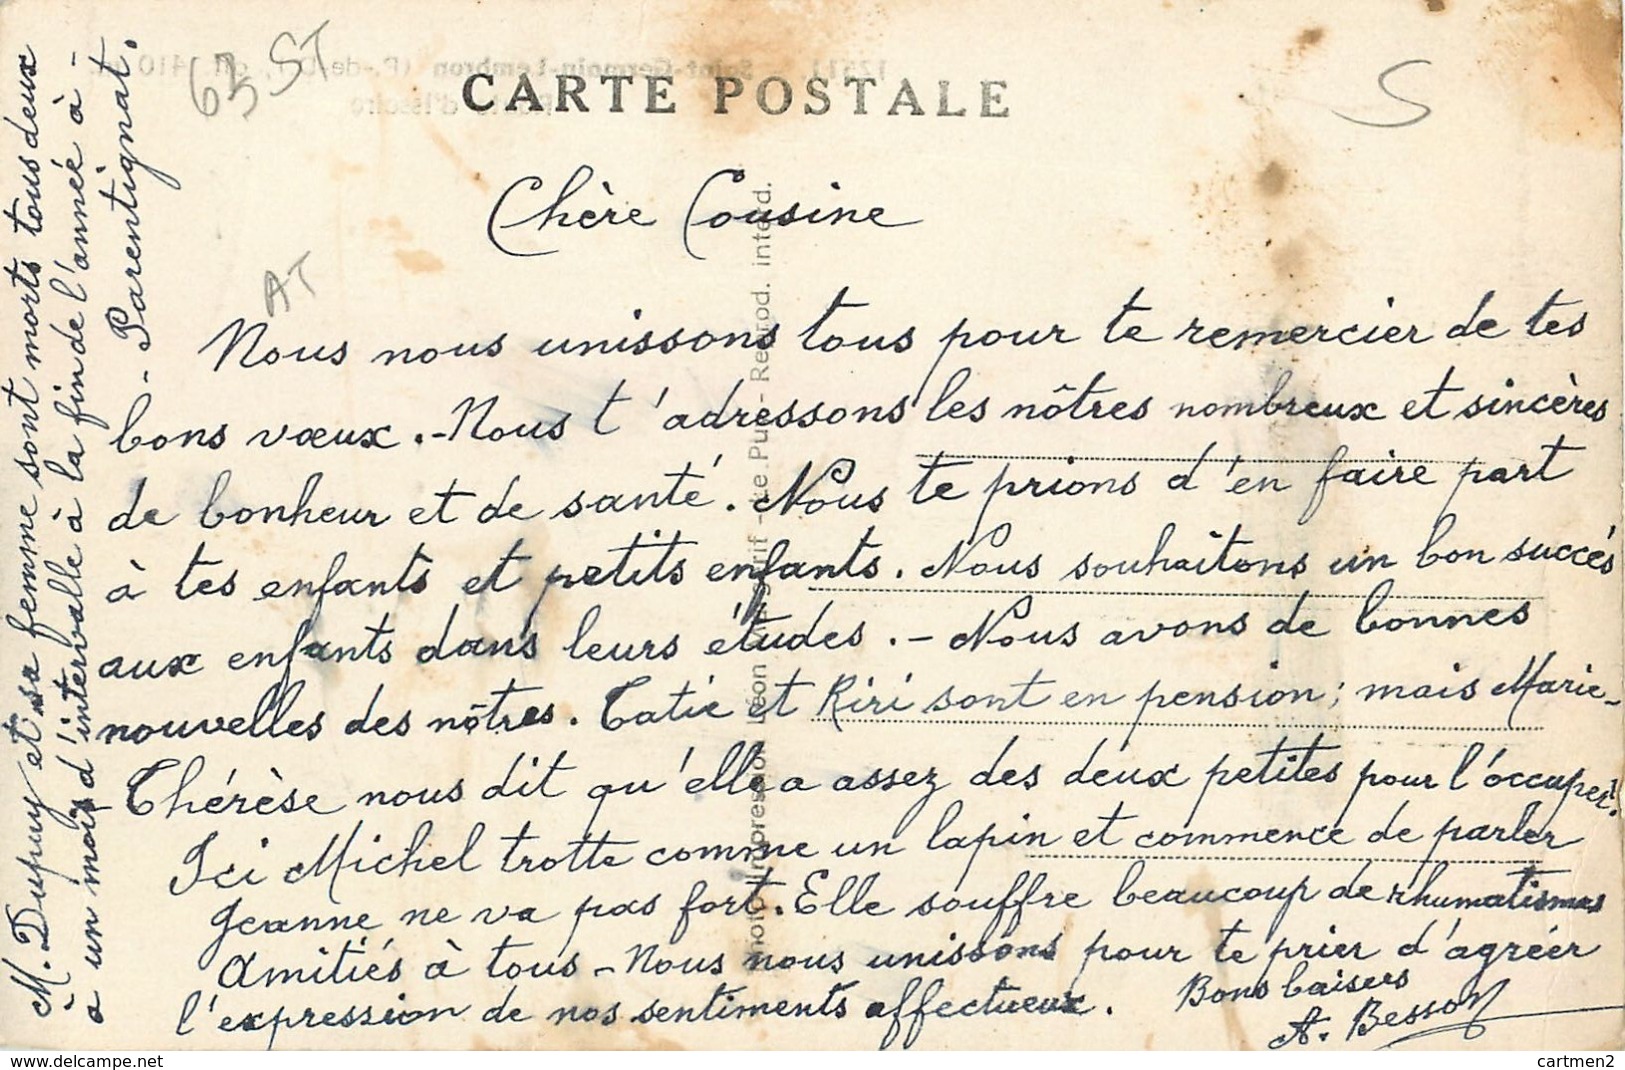 63 ST
S
CARTE POSTALE
AT
Chère Cousine
Nous nous unissons tous pour te remercier de tes
bons vœux. - Nous t'adressons les nôtres nombreux et sincères
de bonheur et de santé. Nous te prions d'en faire part
à tes enfants et petits enfants. Nous souhaitons un bon succés
aux enfants dans leurs études. - Nous avons de bonnes
nouvelles des nôtres. Tatié et Riri sont en pension; mais Marie-
Thérèse nous dit qu'elle a assez des deux petites pour l'occuper.
Ici Michel trotte comme un lapin et commence de parler
Jeanne ne va pas fort. Elle souffre beaucoup de rhumatismes
Amitiés à tous - Nous nous unissons pour te prier d'agréer
l'expression de nos sentiments affectueux. Bons baisers
A. Besson
M. Dupuy et sa femme sont morts tous deux
à un mois d'intervalle à la fin de l'année à -
- Parentignat.
Impression Léon
Reprod. interd.
Saint-Germain-Lembron (P.-de-D.)
d'Issoire
delcampe.net
cartmen2